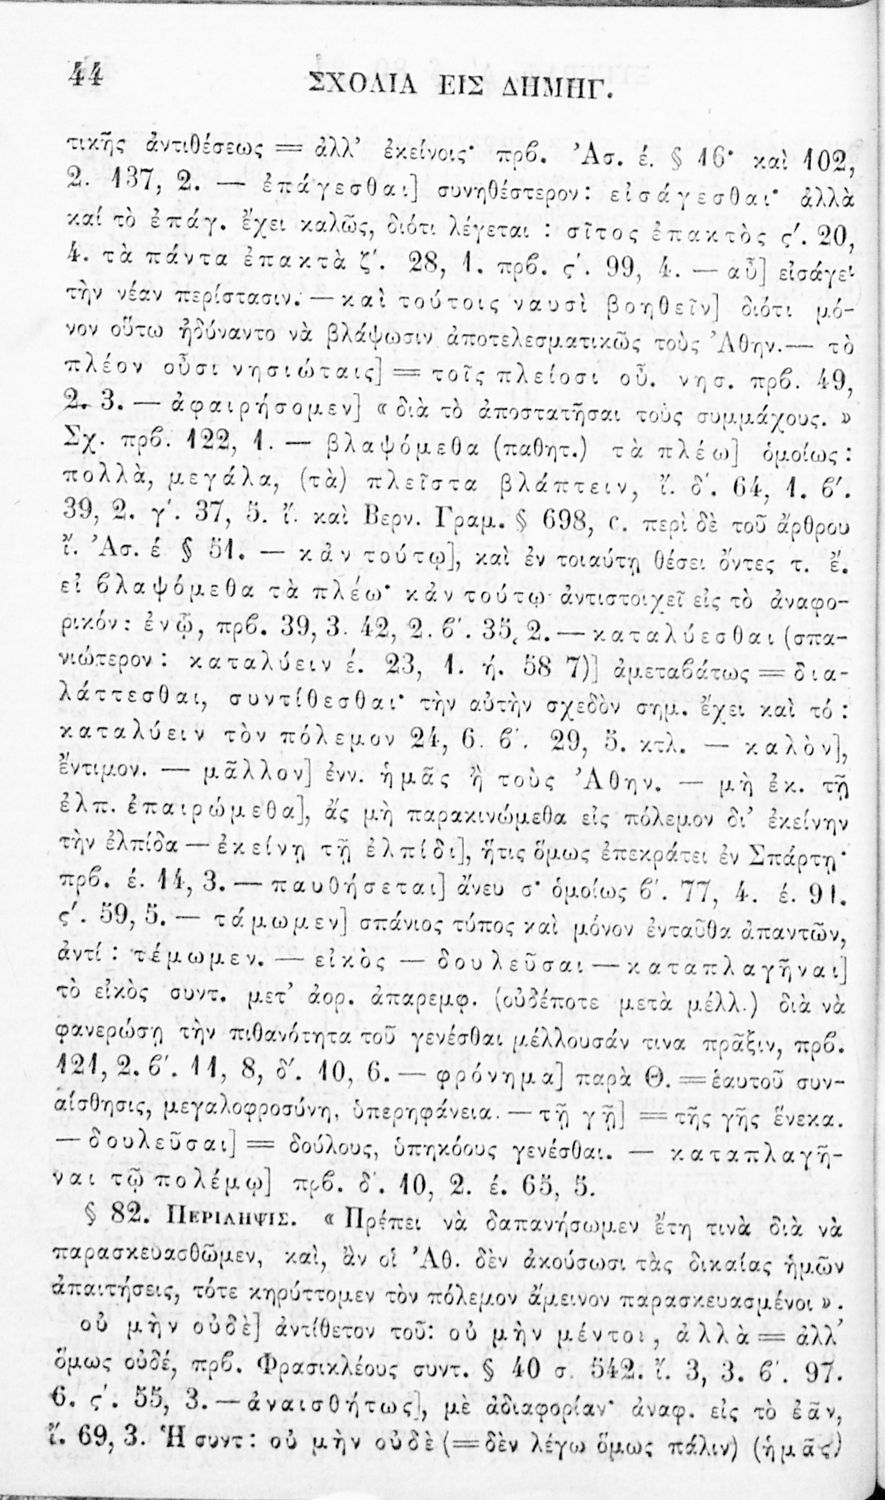 44 ΣΧΟΛΙΑ ΕΙΣ ΔΗΜΗΓ.
τικῆς ἀντιθέσεως = ἀλλ’ ἐκείνοις· πρβ. Ἀσ. έ. § 16· καὶ 102,
2. 137, 2. — ἐπάγεσθαι] συνηθέστερον: εἰσάγεσθαι· ἀλλὰ
καί τὸ ἐπάγ. ἔχει καλῶς, διότι λέγεται : σῖτος ἐπακτὸς ς′. 20,
4. τὰ πάντα ἐπακτὰ ζ′. 28, 1. πρβ. ς′. 99, 4. — αὖ] εἰσάγει
τὴν νέαν περίστασιν. — καὶ τούτοις ναυσὶ βοηθεῖν] διότι μό-
νον οὕτω ἠδύναντο νὰ βλάψωσιν ἀποτελεσματικῶς τοὺς Ἀθην.— τὸ
πλέον οὖσι νησιώταις] = τοῖς πλείοσι οὖ. νησ. πρβ. 49,
2. 3. — ἀφαιρήσομεν] « διὰ τὸ ἀποστατῆσαι τοὺς συμμάχους. »
Σχ. πρβ. 122, 1. — βλαψόμεθα (παθητ.) τὰ πλέω] ὁμοίως :
πολλὰ, μεγάλα, (τὰ) πλεῖστα βλάπτειν, ἴ. δ′. 64, 1. β′.
39, 2. γ′. 37, 5. ἴ. καὶ Βερν. Γραμ. § 698, c. περὶ δὲ τοῦ ἄρθρου
ἴ. Ἀσ. έ § 51. — κἀν τούτῳ], καὶ ἐν τοιαύτῃ θέσει ὄντες τ. ἔ.
εἰ βλαψόμεθα τὰ πλέω· κἀν τούτῳ ἀντιστοιχεῖ εἰς τὸ ἀναφο-
ρικόν: ἐνᾧ, πρβ. 39, 3. 42, 2. β′. 35, 2. — καταλύεσθαι (σπα-
νιώτερον : καταλύειν έ. 23, 1. ή. 58 7)] ἀμεταβάτως = δια-
λάττεσθαι, συντίθεσθαι· τὴν αὐτὴν σχεδὸν σημ. ἔχει καὶ τό :
καταλύειν τὸν πόλεμον 24, 6. β′. 29, 5. κτλ. — καλὸν],
ἔντιμον. — μᾶλλον] ἐνν. ἡμᾶς ἢ τοὺς Ἀθην. — μὴ ἐκ. τῇ
ἐλπ. ἐπαιρώμεθα], ἄς μὴ παρακινώμεθα εἰς πόλεμον δι’ ἐκείνην
τὴν ἐλπίδα — ἐκείνῃ τῇ ἐλπίδι], ἥτις ὅμως ἐπεκράτει ἐν Σπάρτῃ·
πρβ. έ. 14, 3. — παυθήσεται] ἄνευ σ· ὁμοίως β′. 77, 4. έ. 91.
ς′. 59, 5. — τάμωμεν] σπάνιος τύπος καὶ μόνον ἐνταῦθα ἀπαντῶν,
ἀντί : τέμωμεν. — εἰκὸς — δουλεῦσαι — καταπλαγῆναι]
τὸ εἰκὸς συντ. μετ’ ἀορ. ἀπαρεμφ. (οὐδέποτε μετὰ μέλλ.) διὰ νὰ
φανερώσῃ τὴν πιθανότητα τοῦ γενέσθαι μέλλουσάν τινα πρᾶξιν, πρβ.
121, 2. β′. 11, 8, δ′. 10, 6. — φρόνημα] παρὰ Θ. = ἑαυτοῦ συν-
αίσθησις, μεγαλοφροσύνη, ὑπερηφάνεια. — τῇ γῇ] = τῆς γῆς ἕνεκα.
— δουλεῦσαι] = δούλους, ὑπηκόους γενέσθαι. — καταπλαγῆ-
ναι τῷ πολέμῳ] πρβ. δ′. 10, 2. έ. 65, 5.
§ 82. Περιληψις. « Πρέπει νὰ δαπανήσωμεν ἔτη τινὰ διὰ νὰ
παρασκευασθῶμεν, καὶ, ἂν οἱ Ἀθ. δὲν ἀκούσωσι τὰς δικαίας ἡμῶν
ἀπαιτήσεις, τότε κηρύττομεν τὸν πόλεμον ἄμεινον παρασκευασμένοι ».
οὐ μὴν οὐδὲ] ἀντίθετον τοῦ: οὐ μὴν μέντοι, ἀλλὰ = ἀλλ’
ὅμως οὐδέ, πρβ. Φρασικλέους συντ. § 40 σ. 542. ἴ. 3, 3. β′. 97.
6. ς′. 55, 3. — ἀναισθήτως], μὲ ἀδιαφορίαν· ἀναφ. εἰς τὸ ἐᾶν,
ἴ. 69, 3. Ἡ συντ: οὐ μὴν οὐδὲ (= δὲν λέγω ὅμως πάλιν) (ἡμᾶς)